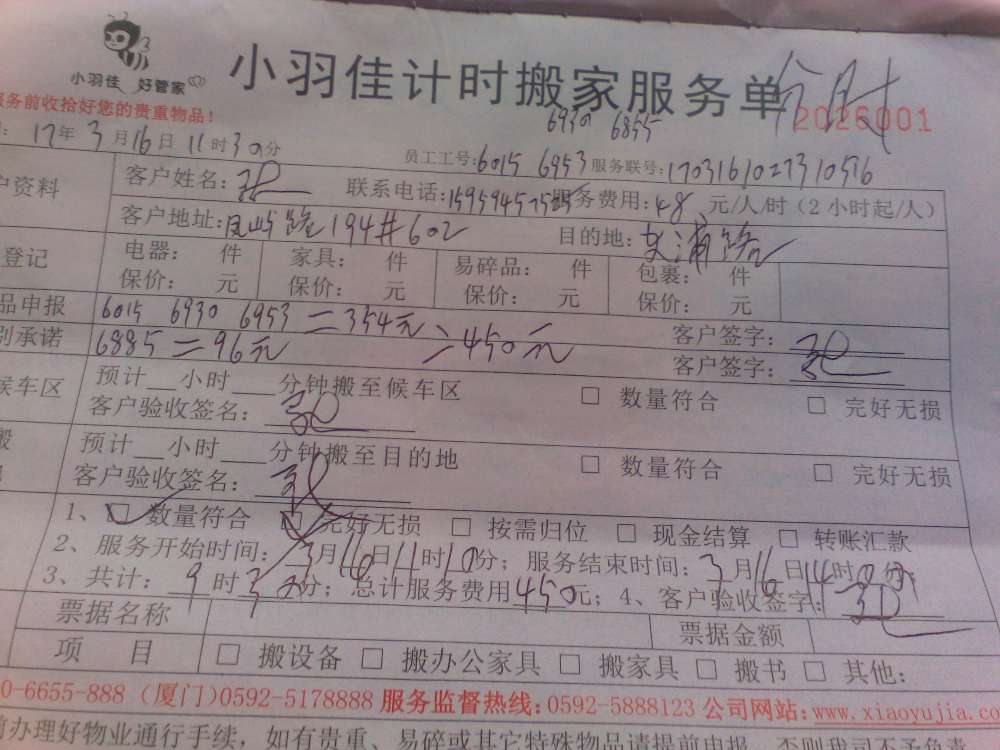 小羽佳 好管家
小羽佳计时搬家服务单
服务前收拾好您的贵重物品!
2026001
6930 6855
17年3月16日11时30分
员工工号:6015 6953 服务联号:
户资料 客户姓名: 联系电话: 服务费用:48 元/人/时(2小时起/人)
客户地址: 194#602 目的地:
登记 电器: 件 家具: 件 易碎品: 件 包裹: 件
保价: 元 保价: 元 保价: 元 保价: 元
品申报 6015 6930 6953=354元 客户签字:
450元
别承诺 6885=96元 客户签字:
候车区 预计__小时___分钟搬至候车区 □ 数量符合 □ 完好无损
客户验收签名:
搬 预计__小时___分钟搬至目的地 □ 数量符合 □ 完好无损
客户验收签名:
1、□ 数量符合 □ 完好无损 □ 按需归位 □ 现金结算 □ 转账汇款
2、服务开始时间:3月16日11时10分;服务结束时间:3月16日14时00分
3、共计:9时30分;总计服务费用450元;4、客户验收签字:
票据名称 票据金额
项 目 □ 搬设备 □ 搬办公家具 □ 搬家具 □ 搬书 □ 其他:
0-6655-888 (厦门)0592-5178888 服务监督热线:0592-5888123 公司网站:www.xiaoyujia.co
前办理好物业通行手续,如有贵重、易碎或其它特殊物品请提前申报,否则我司不予负责